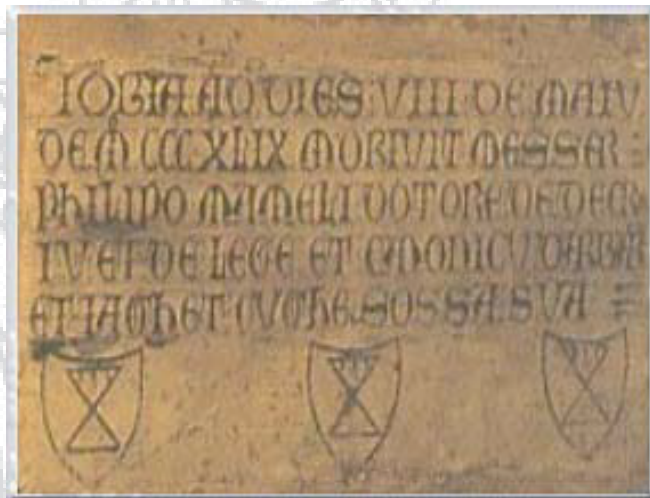 IOBIA AD DIES VIII DE MAIU
DE M CCC XLIX MORIVIT MESSER
PHILIPO MAMELI DOTORE DE DECR
IV ET DE LEGE ET CANONICU DARBAR
ET IAGHET CVGHE SOSSA SUA